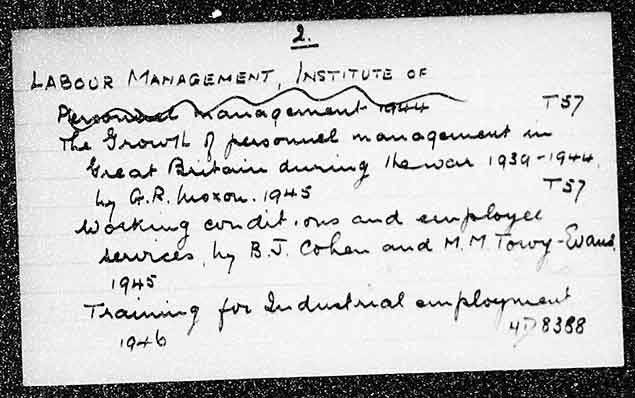 2.
LABOUR MANAGEMENT, INSTITUTE OF
Personnel management 1944 T57
The Growth of personnel management in
Great Britain during the war 1939-1944,
by G.R. Moxon. 1945 T57
Working conditions and employee
services, by B.J. Cohen and M.M Towy-Evans.
1945
Training for Industrial employment
1946 4D 8388